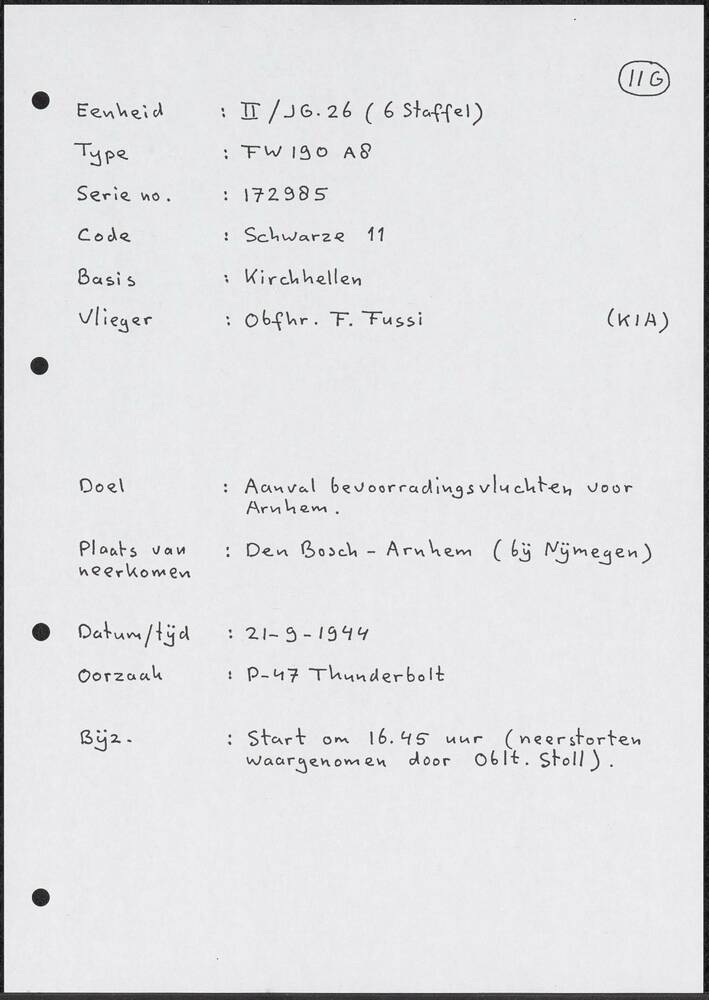 11G
Eenheid : II / JG. 26 ( 6 Staffel)
Type : FW 190 A8
Serie no. : 172985
Code : Schwarze 11
Basis : Kirchhellen
Vlieger : Obfhr. F. Fussi (KIA)
Doel : Aanval bevoorradingsvluchten voor
Arnhem.
Plaats van : Den Bosch - Arnhem ( bij Nijmegen)
neerkomen
Datum/tijd : 21-9-1944
Oorzaak : P-47 Thunderbolt
Bijz. : Start om 16.45 uur (neerstorten
waargenomen door Oblt. Stoll).